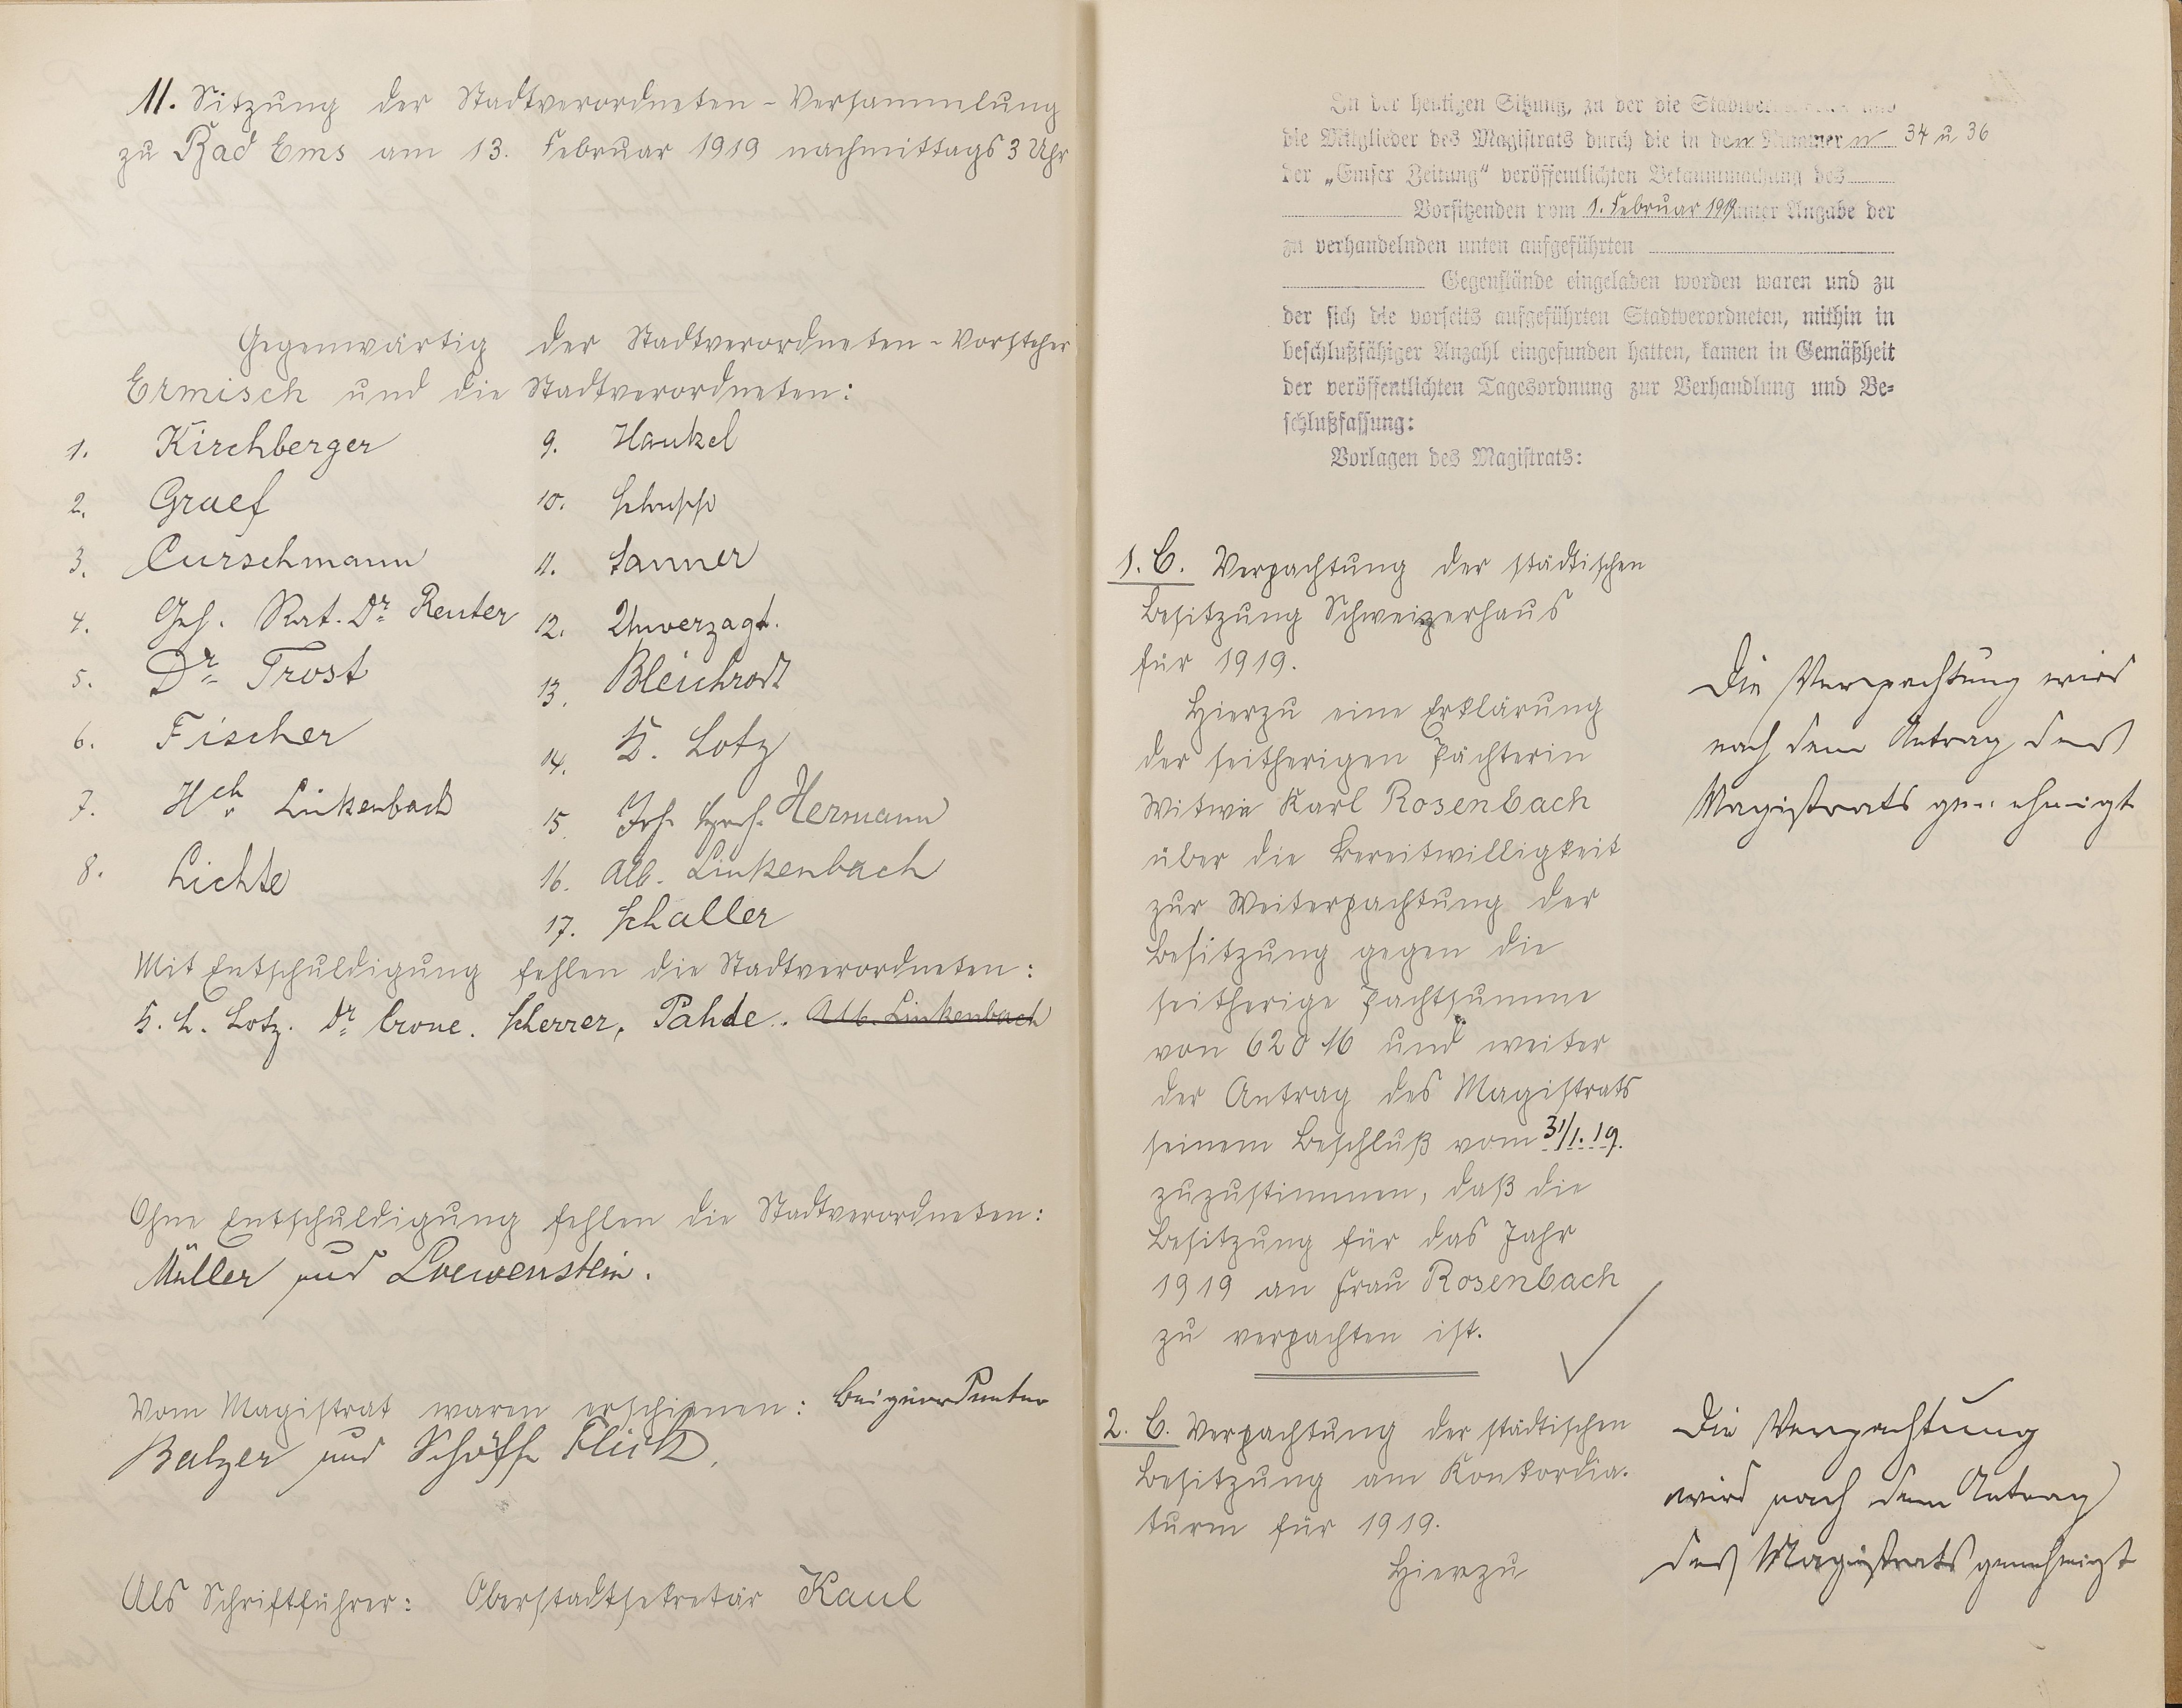 11. Sitzung der Stadtverordneten-Versammlung
zu Bad Ems am 13. Februar 1919 nachmittags 3 Uhr
Gegenwärtig der Stadtverordneten-Vorsteher
Ermisch und die Stadtverordneten:
1. Kirchberger
2. Graef
3. Curschmann
4. Geh. Rat. Dr Reuter
5. Dr Trost
6. Fischer
7. Hch. Linkenbach
8. Lichte
9. Hankel
10. Schupp
11. Sanner
12. Unverzagt.
13. Bleichrodt
14. K. Lotz
15. Joh. Hermann
16. Alb. Linkenbach
17. Schaller
Mit Entschuldigung fehlen die Stadtverordneten:
K. L. Lotz. Dr Crone. Scherrer, Pahde. Alb. Linkenbach
Ohne Entschuldigung fehlen die Stadtverordneten:
Müller und Loewenstein.
Vom Magistrat waren erschienen: Beigeordneter
Balzer und Schöffe Flick.
Als Schriftführer: Oberstadtsekretär Kaul
In der heutigen Sitzung, zu der die
die Mitglieder des Magistrats durch die in den Nummern 34 u 36
der „Emser Zeitung“ veröffentlichten Bekanntmachung des
Vorsitzenden vom 1. Februar 1919 unter Angabe der
zu verhandelnden unten aufgeführten
Gegenstände eingeladen worden waren und zu
der sich die vorseits aufgeführten Stadtverordneten, mithin in
beschlußfähiger Anzahl eingefunden hatten, kamen in Gemäßheit
der veröffentlichten Tagesordnung zur Verhandlung und Be-
schlußfassung:
Vorlagen des Magistrats:
1. C. Verpachtung der städtischen
Besitzung Schweizerhaus
für 1919.
Hierzu eine Erklärung
der seitherigen Pächterin
Witwe Karl Rosenbach
über die Bereitwilligkeit
zur Weiterpachtung der
Besitzung gegen die
seitherige Pachtsumme
von 620 M und weiter
der Antrag des Magistrats
seinem Beschluß vom 31/1. 19.
zuzustimmen, daß die
Besitzung für das Jahr
1919 an Frau Rosenbach
zu verpachten ist.
Die Verpachtung wird
nach dem Antrag des
Magistrats genehmigt
2. C. Verpachtung der städtischen
Besitzung am Konkordia-
turm für 1919.
Hierzu
Die Verpachtung
wird nach dem Antrag
des Magistrats genehmigt